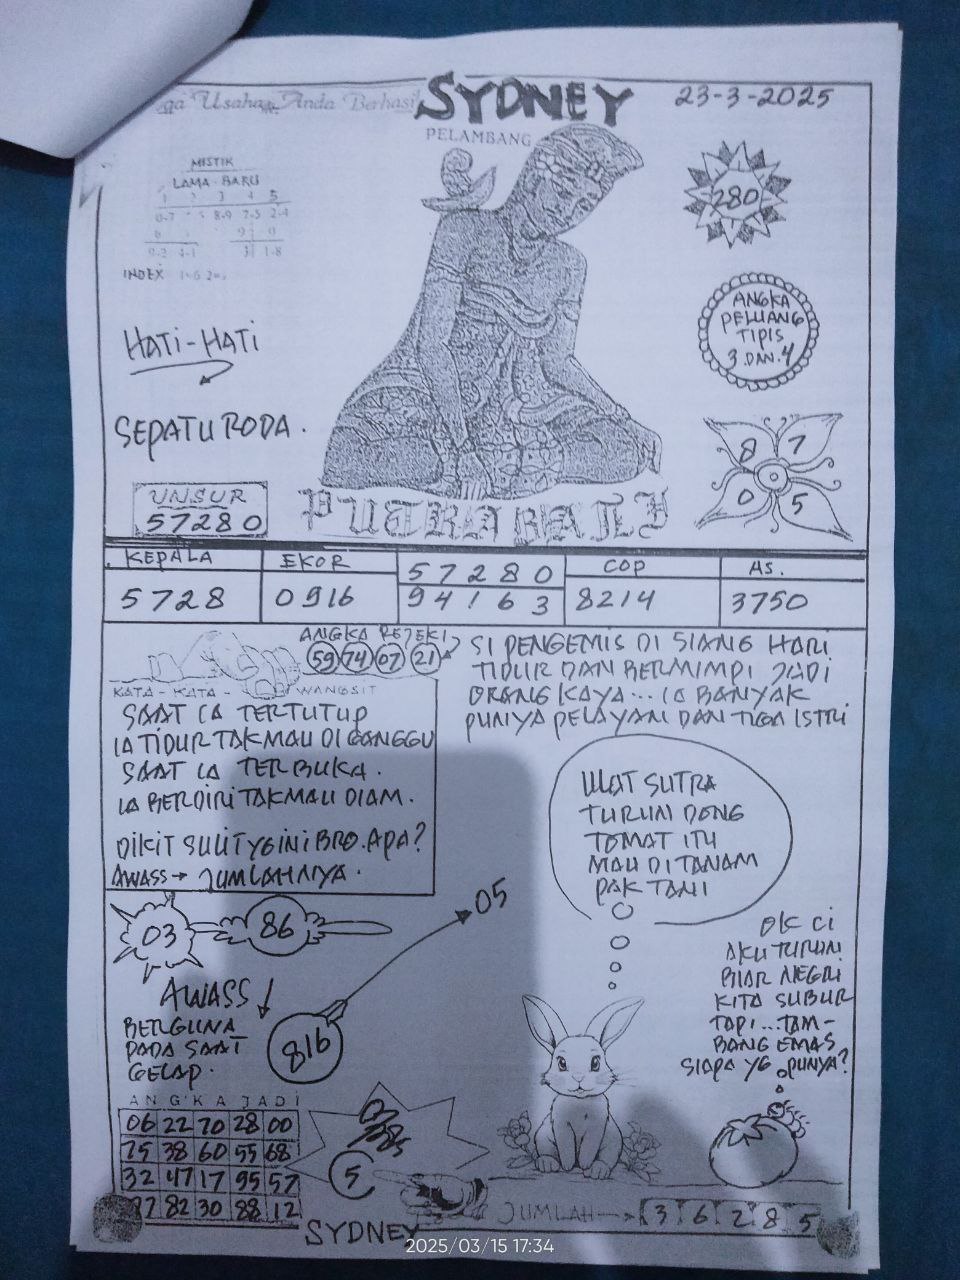 Usaha Anda Berhasil
SYDNEY
23-3-2025
PELAMBANG
MISTIK
LAMA-BARU
8-9 7-5 2-4
1-8
INDEX
280
ANGKA
PELUANG
TIPIS
3 DAN 4
HATI-HATI
SEPATU RODA.
8 7
0 5
UNSUR
57280
PUTRA BALI
KEPALA EKOR 57280 COP AS.
5728 0916 94163 8214 3750
ANGKA REJEKI
59 74 07 21
KATA-KATA-WANGSIT
SAAT IA TERTUTUP
IA TIDUR TAK MAU DI GANGGU
SAAT IA TERBUKA.
IA BERDIRI TAK MAU DIAM.
DIKIT SULIT YG INI BRO. APA?
AWASS → JUMLAHNYA.
SI PENGEMIS DI SIANG HARI
TIDUR DAN BERMIMPI JADI
ORANG KAYA... IA BANYAK
PUNYA PELAYAN DAN TIGA ISTRI
ULAT SUTRA
TURUN DONG
TOMAT ITU
MAU DI TANAM
PAK TANI
03
86
05
AWASS
BERGUNA
PADA SAAT
GELAP.
816
OK CI
AKU TURUN
BIAR NEGRI
KITA SUBUR
TAPI...TAM-
BANG EMAS
SIAPA YG PUNYA?
ANGKA JADI
06 22 70 28 00
75 38 60 55 68
32 47 17 95 57
82 30 88 12
5
JUMLAH → 3 6 2 8 5
SYDNEY
2025/03/15 17:34